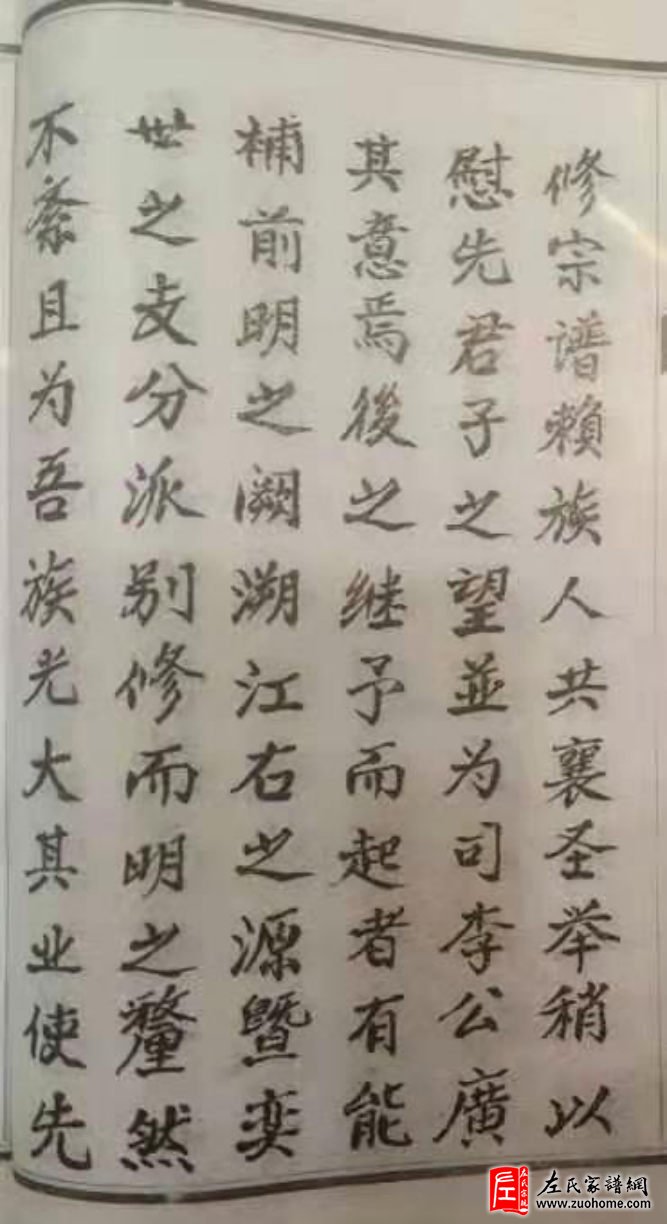 修宗谱赖族人共襄圣举稍以
慰先君子之望並为司李公廣
其意焉後之继予而起者有能
補前明之阙溯江右之源暨奕
世之支分派别修而明之釐然
不紊且为吾族光大其业使先
左氏家譜網
www.zuohome.com